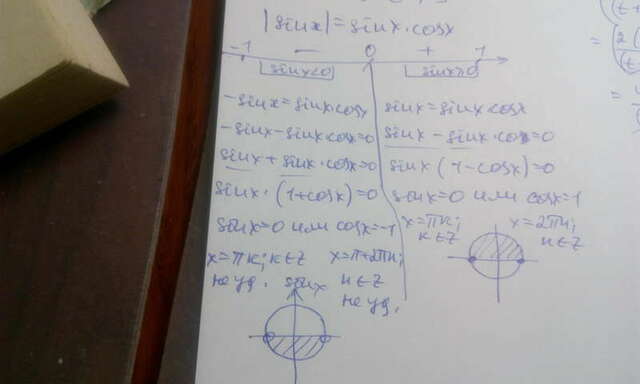 |sinx|=sinx·cosx
-1 − 0 + 1
sinx<0 sinx>0
-sinx=sinxcosx
-sinx-sinxcosx=0
sinx+sinx·cosx=0
sinx·(1+cosx)=0
sinx=0 или cosx=-1
x=πк; к∈Z x=π+2πн;
не уд. н∈Z
не уд.
sinx
sinx=sinxcosx
sinx-sinx·cosx=0
sinx(1-cosx)=0
sinx=0 или cosx=1
x=πк; x=2πн;
к∈Z н∈Z